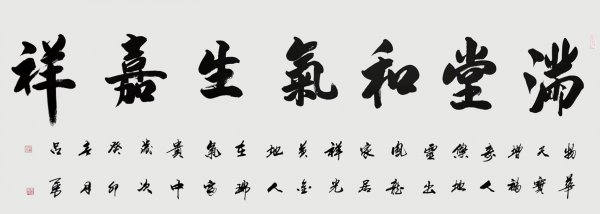 滿堂和氣生嘉祥
物華
天寶
增福
壽人
傑地
靈出
鳳龍
家居
祥光
黃金
地人
在瑞
氣富
貴中
歲次
癸卯
月
呂